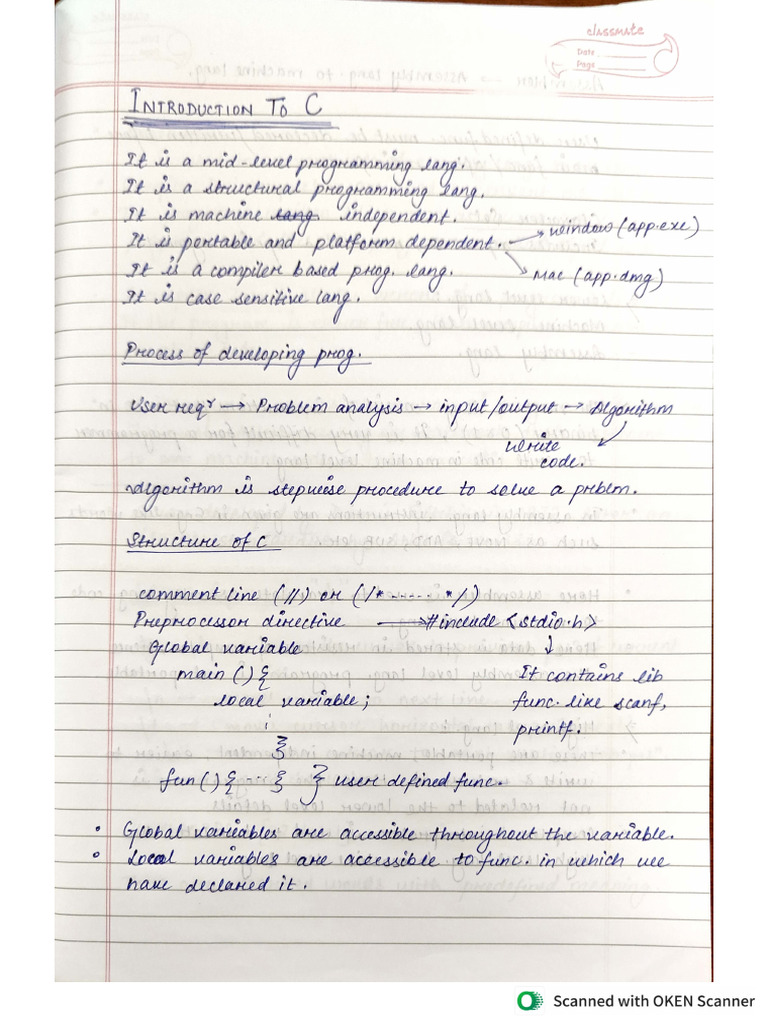 classmate
Date
Page
INTRODUCTION TO C
It is a mid-level programming lang.
It is a structural programming lang.
It is machine lang. independent.
It is portable and platform dependent. → window (app.exe)
→ Mac (app.dmg)
It is a compiler based prog. lang.
It is case sensitive lang.
Process of developing prog.
User reqʳ → Problem analysis → input/output → Algorithm
write
code.
Algorithm is stepwise procedure to solve a prblm.
Structure of C
comment line (//) or (/* ...... */)
Preprocessor directive → #include <stdio.h>
Global variable ↓
main () { It contains lib
local variable; func. like scanf,
printf.
}
fun() { ... } } user defined func.
• Global variables are accessible throughout the variable.
• Local variables are accessible to func. in which we
have declared it.
Scanned with OKEN Scanner